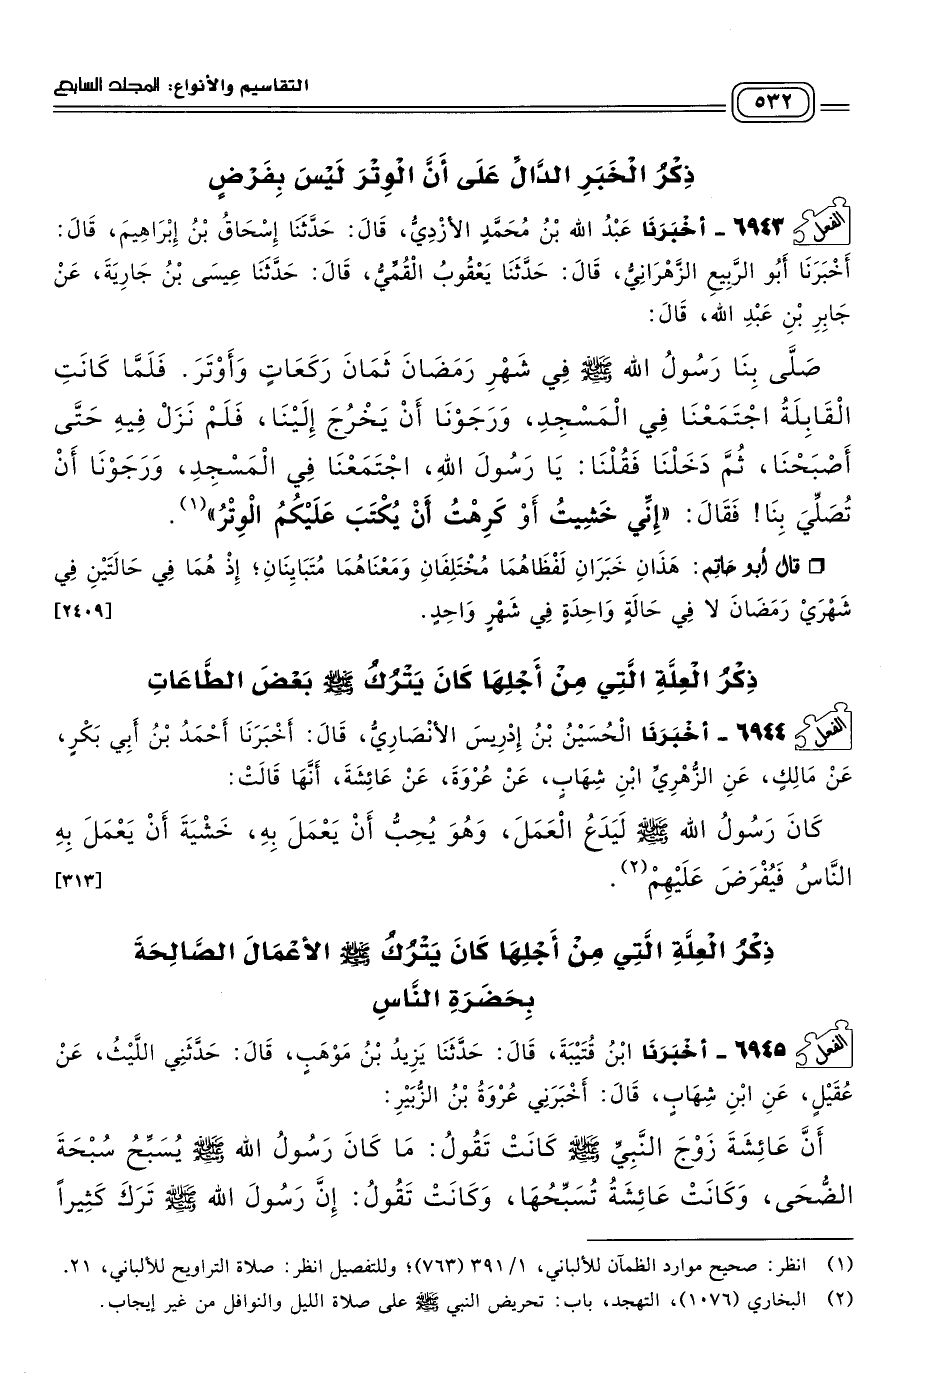 التقاسيم والأنواع: المجلد السابع
٥٣٢
ذِكْرُ الْخَبَرِ الدَّالِّ عَلَى أَنَّ الْوِتْرَ لَيْسَ بِفَرْضٍ
الفعل ٦٩٤٣ - أَخْبَرَنَا عَبْدُ الله بْنُ مُحَمَّدٍ الأزْدِيُّ، قَالَ: حَدَّثَنَا إِسْحَاقُ بْنُ إِبْرَاهِيمَ، قَالَ:
أَخْبَرَنَا أَبُو الرَّبِيعِ الزَّهْرَانِيُّ، قَالَ: حَدَّثَنَا يَعْقُوبُ الْقُمِّيُّ، قَالَ: حَدَّثَنَا عِيسَى بْنُ جَارِيَةَ، عَنْ
جَابِرِ بْنِ عَبْدِ الله، قَالَ:
صَلَّى بِنَا رَسُولُ الله ﷺ فِي شَهْرِ رَمَضَانَ ثَمَانَ رَكَعَاتٍ وَأَوْتَرَ. فَلَمَّا كَانَتِ
الْقَابِلَةُ اجْتَمَعْنَا فِي الْمَسْجِدِ، وَرَجَوْنَا أَنْ يَخْرُجَ إِلَيْنَا، فَلَمْ نَزَلْ فِيهِ حَتَّى
أَصْبَحْنَا، ثُمَّ دَخَلْنَا فَقُلْنَا: يَا رَسُولَ اللهِ، اجْتَمَعْنَا فِي الْمَسْجِدِ، وَرَجَوْنَا أَنْ
تُصَلِّيَ بِنَا! فَقَالَ: «إِنِّي خَشِيتُ أَوْ كَرِهْتُ أَنْ يُكْتَبَ عَلَيْكُمُ الْوِتْرُ»(١).
❑ قال أبو حاتِم: هَذَانِ خَبَرَانِ لَفْظَاهُمَا مُخْتَلِفَانِ وَمَعْنَاهُمَا مُتَبَايِنَانِ؛ إِذْ هُمَا فِي حَالَتَيْنِ فِي
شَهْرَيْ رَمَضَانَ لا فِي حَالَةٍ وَاحِدَةٍ فِي شَهْرٍ وَاحِدٍ. [٢٤٠٩]
ذِكْرُ الْعِلَّةِ الَّتِي مِنْ أَجْلِهَا كَانَ يَتْرُكُ ﷺ بَعْضَ الطَّاعَاتِ
الفعل ٦٩٤٤ - أَخْبَرَنَا الْحُسَيْنُ بْنُ إِدْرِيسَ الأنْصَارِيُّ، قَالَ: أَخْبَرَنَا أَحْمَدُ بْنُ أَبِي بَكْرٍ،
عَنْ مَالِكٍ، عَنِ الزُّهْرِيِّ ابْنِ شِهَابٍ، عَنْ عُرْوَةَ، عَنْ عَائِشَةَ، أَنَّهَا قَالَتْ:
كَانَ رَسُولُ الله ﷺ لَيَدَعُ الْعَمَلَ، وَهُوَ يُحِبُّ أَنْ يَعْمَلَ بِهِ، خَشْيَةَ أَنْ يَعْمَلَ بِهِ
النَّاسُ فَيُفْرَضَ عَلَيْهِمْ(٢). [٣١٣]
ذِكْرُ الْعِلَّةِ الَّتِي مِنْ أَجْلِهَا كَانَ يَتْرُكُ ﷺ الأعْمَالَ الصَّالِحَةَ
بِحَضْرَةِ النَّاسِ
الفعل ٦٩٤٥ - أَخْبَرَنَا ابْنُ قُتَيْبَةَ، قَالَ: حَدَّثَنَا يَزِيدُ بْنُ مَوْهَبٍ، قَالَ: حَدَّثَنِي اللَّيْثُ، عَنْ
عُقَيْلٍ، عَنِ ابْنِ شِهَابٍ، قَالَ: أَخْبَرَنِي عُرْوَةُ بْنُ الزُّبَيْرِ:
أَنَّ عَائِشَةَ زَوْجَ النَّبِيِّ ﷺ كَانَتْ تَقُولُ: مَا كَانَ رَسُولُ الله ﷺ يُسَبِّحُ سُبْحَةَ
الضُّحَى، وَكَانَتْ عَائِشَةُ تُسَبِّحُهَا، وَكَانَتْ تَقُولُ: إِنَّ رَسُولَ الله ﷺ تَرَكَ كَثِيراً
(١) انظر: صحيح موارد الظمآن للألباني، ١/ ٣٩١ (٧٦٣)؛ وللتفصيل انظر: صلاة التراويح للألباني، ٢١.
(٢) البخاري (١٠٧٦)، التهجد، باب: تحريض النبي ﷺ على صلاة الليل والنوافل من غير إيجاب.